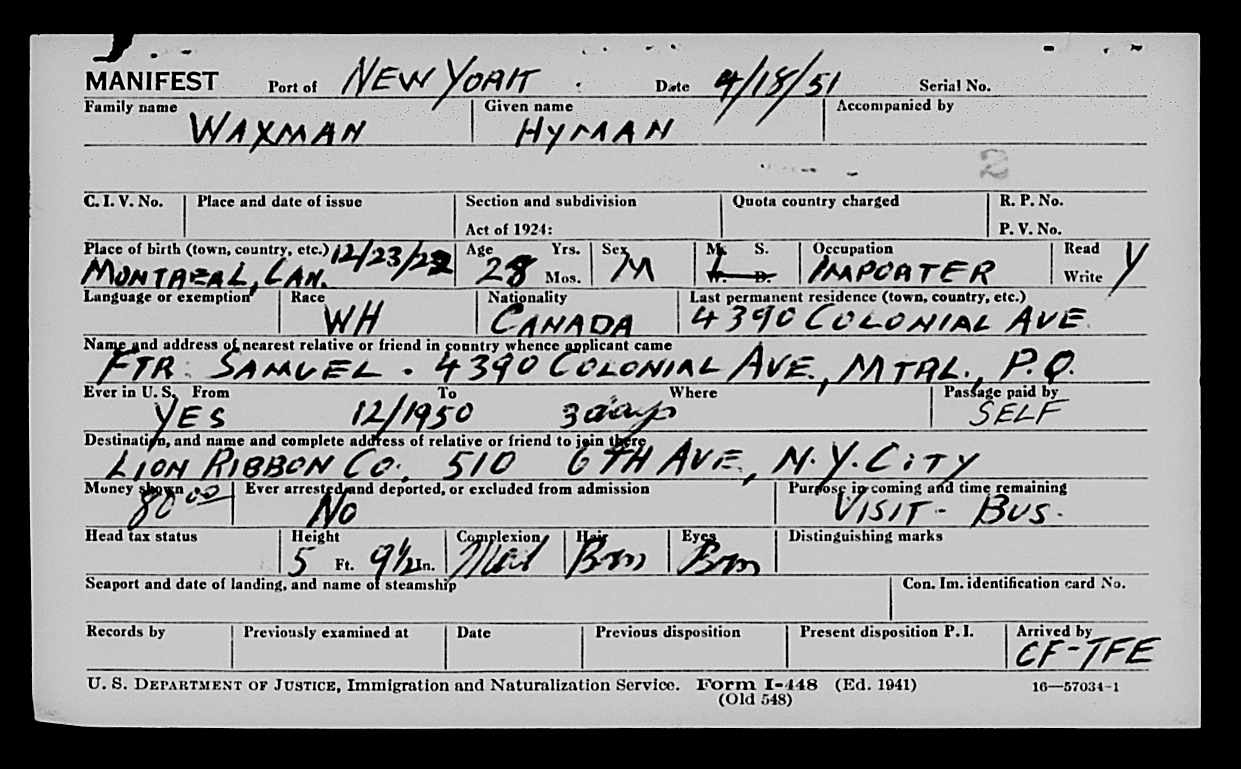 MANIFEST Port of NEW YORK Date 4/18/51 Serial No.
Family name Given name Accompanied by
WAXMAN HYMAN
2
C. I. V. No. Place and date of issue Section and subdivision Quota country charged R. P. No.
Act of 1924: P. V. No.
Place of birth (town, country, etc.) 12/23/22 Age Yrs. Sex M. S. Occupation Read
MONTREAL, CAN. 28 Mos. M W. D. IMPORTER Write Y
Language or exemption Race Nationality Last permanent residence (town, country, etc.)
WH CANADA 4390 COLONIAL AVE.
Name and address of nearest relative or friend in country whence applicant came
FTR. SAMUEL. 4390 COLONIAL AVE., MTRL., P.Q.
Ever in U. S. From To Where Passage paid by
YES 12/1950 3 days SELF
Destination, and name and complete address of relative or friend to join there
LION RIBBON CO. 510 6TH AVE., N.Y. CITY
Money shown Ever arrested and deported, or excluded from admission Purpose in coming and time remaining
80 00 NO VISIT - BUS.
Head tax status Height Complexion Hair Eyes Distinguishing marks
5 Ft. 9½ In. Med Brn Brn
Seaport and date of landing, and name of steamship Con. Im. identification card No.
Records by Previously examined at Date Previous disposition Present disposition P. I. Arrived by
CF-TFE
U. S. DEPARTMENT OF JUSTICE, Immigration and Naturalization Service. Form I-448 (Ed. 1941) 16—57034-1
(Old 548)